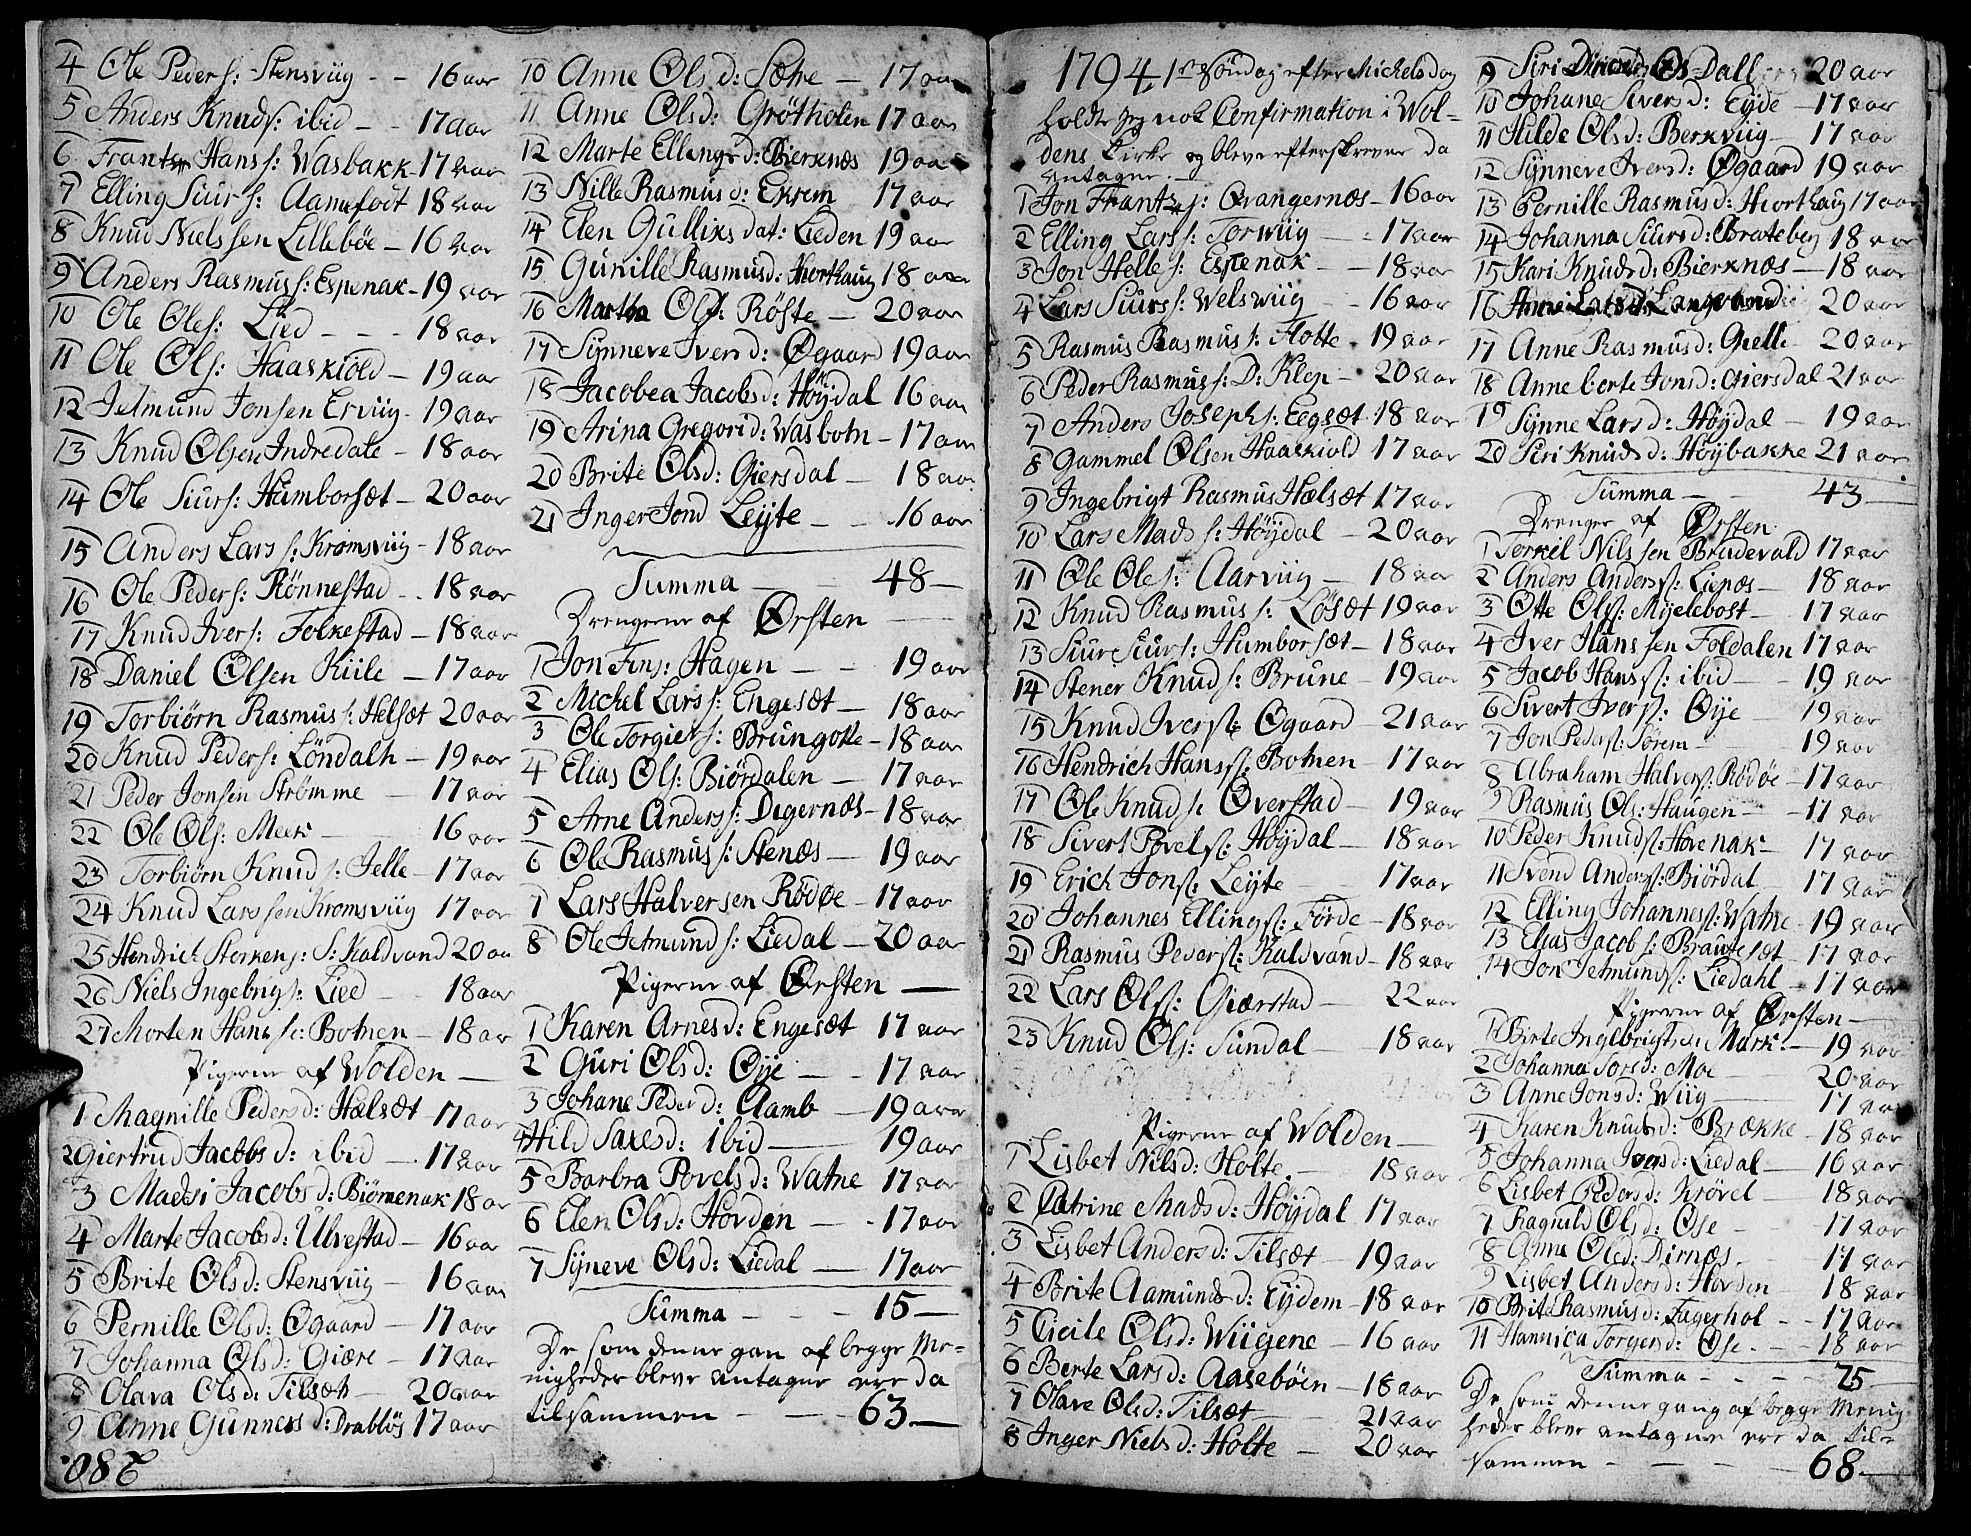 4 Ole Peders: Stensviig - - 16 aar
5 Anders Knuds: ibid - - 17 aar
6 Frantz Hans s: Wasbakk - 17 aar
7 Elling Siurs: Aamefodt 18 aar
8 Knud Nielssen Lillebøe - 16 aar
9 Anders Rasmus s: Espenak - 19 aar
10 Ole Oles: Lied - - - 18 aar
11 Ole Ols: Haaskiold - 19 aar
12 Jetmund Jonsen Erviig - 19 aar
13 Knud Olsen Indredale - 18 aar
14 Ole Siurs: Humborsæt - 20 aar
15 Anders Lars s: Kromsviig - 18 aar
16 Ole Peders: Rönnestad - - 18 aar
17 Knud Ivers: Folkestad - 18 aar
18 Daniel Olsen Kiile - 17 aar
19 Torbiørn Rasmus s: Helsæt 20 aar
20 Knud Peders: Löndalh - 19 aar
21 Peder Jonsen Strømme - 17 aar
22 Ole Ols: Meek - 16 aar
23 Torbiørn Knud s: Jelle - 17 aar
24 Knud Larssen Kromsviig 17 aar
25 Hendrich Sterkens: S: Kaldvand 20 aa
26 Niels Ingebrigs: Lied - 18 aar
27 Morten Hans s: Botnen - 18 aar
Pigerne af Wolden -
1 Magnille Peders d: Hælsæt - 17 aar
2 Giertrud Jacobs d: ibid - 17 aar
3 Madsi Jacobs d: Biørnenak 18 ar
4 Marte Jacobsd: Ulvestad - 16 aar
5 Brite Olsd: Stensviig - 16 aar
6 Pernille Olsd: Øgaard - 17 aar
7 Johanna Olsd: Giære - 17 aar
8 Olava Olsd: Tilsæt - 20 aar
9 Anne Gunners d: Drabløs 17 aar
280.
10 Anne Olsd: Sætre - 17 aar
11 Anne Olsd: Grøtholen 17 aar
12 Marte Ellings d: Bierknæs 19 aar
13 Nille Rasmus d: Ekrem 17 aar
14 Elen Gulliks dat: Lieden 19 aar
15 Gunille Rasmusd: Hiorthaug 18 aar
16 Martha Olsd: Röfte - 20 aar
17 Synneve Ivers d: Øgaard 19 aar
18 Jacobea Jacobsd: Höydal 16 aar
19 Arina Gregorid: Wasbotn - 17 aar
20 Brite Olsd: Giersdal - 18 aar
21 Inger Jond Leyte - - 16 aar
Summa - 48 -
Drengerne af Ørsten -
1 Jon Fins: Hagen - - 19 aar
2 Michel Lars s: Engesæt - 18 aar
3 Ole Torgiers: Brungolle - 18 aar
4 Elias Ols: Biørdalen - 17 aar
5 Arne Anders s: Digernæs - 18 aar
6 Ole Rasmus s: Stenæs - 19 aar
7 Lars Halversen Rødøe - 17 aar
8 Ole Jetmund s: Liedal - 20 aar
Pigerne af Ørsten -
1 Karen Arnesd: Engesæt 17 aar
2 Guri Olsd: Øye - - 17 aar
3 Johane Peder d: Aamb - 19 aar
4 Hild Saxesd: ibid - 19 aar
5 Barbra Povelsd: Watne 17 aar
6 Elen Olsd: Hovden - - 17 aar
7 Syneve Olsd: Liedal - 17 aar
Summa - - 15 -
De som denne gan af begge Me-
nigheder bleve antagne ere da
tilsammen - - - 63 -
1794, 1ste Söndag efter Michelsdag
holdt jeg nok Confirmation i Wol-
dens Kirke og bleve efterskrevne da
antagne. -
1 Jon Frantz s: Qvangernæs - 16 aar
2 Elling Lars s: Torwiig - - 17 aar
3 Jon Helle s: Espenak - - 18 aar
4 Lars Siurs s: Welswiig - - 16 aar
5 Rasmus Rasmus s: Flotte - 19 aar
6 Peder Rasmus s: D: Klep - 20 aar
7 Anders Josephs: Eegsæt 18 aar
8 Gammel Olsen Haaskiold 17 aar
9 Ingebrigt Rasmus Hælsæt 17 aar
10 Lars Mads s: Höydal - 20 aar
11 Ole Oles: Aarviig - 18 aar
12 Knud Rasmus s: Løsæt 19 aar
13 Siur Siurs: Humborsæt - 18 aar
14 Stener Knud s: Brune - 19 aar
15 Knud Ivers s: Øgaard - 21 aar
16 Hendrich Hans s: Botnen - 17 aar
17 Ole Knud s: Øverstad - 19 aar
18 Sivert Povel s: Höydal - 18 aar
19 Erich Jons: Leyte - 17 aar
20 Johannes Ellings: Förde - 18 aar
21 Rasmus Peders: Kaldvand - 18 aar
22 Lars Ols: Giærstad - 22 aar
23 Knud Ols: Sundal - 18 aar
Pigerne af Wolden -
1 Lisbet Nilsd: Holte - 18 aar
2 Catrine Madsd: Höydal 17 aar
3 Lisbet Andersd: Tilsæt - 19 aar
4 Brite Aamunds d: Eydem - 18 aar
5 Cicile Olsd: Wiigene - 16 aar
6 Berte Larsd: Aasebøen - 18 aar
7 Olave Olsd: Tilsæt - 21 aar
8 Inger Niels d: Holte - 20 aar
9 Siri Olsd: Dall 20 aar
10 Johane Sivers d: Eyde - 17 aar
11 Hilde Olsd: Berkviig - 17 aar
12 Synneve Ivers d: Øgaard 19 aar
13 Pernille Rasmus d: Hiorthaug 17 aar
14 Johanna Siursd: Brateberg 18 aar
15 Kari Knudsd: Bierknæs - 18 aar
16 Anne 20 aar
17 Anne Rasmusd: Gielle - 20 aar
18 Anne berte Jonsd: Giersdal 21 aar
19 Synne Larsd: Höydal - 19 aar
20 Siri Knuds d: Höybakke 21 aar
Summa - 43 -
Drenger af Ørsten
1 Torkel Nilssen Brudevald 17 aar
2 Anders Anders s: Lienæs - 18 aar
3 Otte Ols: Myelebost - 17 aar
4 Iver Hanssen Foldalen 17 aar
5 Jacob Hans s: ibid - 19 aar
6 Sivert Ivers s: Øye - 19 aar
7 Jon Peders: Sørem - 19 aar
8 Abraham Halvers: Rødøe - 17 aar
9 Rasmus Ols: Haugen - - 17 aar
10 Peder Knuds: Hovenak - 17 aar
11 Svend Anders: Biördal - 17 aar
12 Elling Johannes s: Watne - 19 aar
13 Elias Jacob s: Brautesæt - 17 aar
14 Jon Jetmunds: Liedahl - 17 aar
Pigerne af Ørsten -
1 Birte Ingebrigtsd: Mark. - 19 aar
2 Johanna Torsd: Moe - 20 aar
3 Anne Jonsd: Wiig - 17 aar
4 Karen Knudsd: Brække - 18 aar
5 Johanna Iversd: Liedal - 16 aar
6 Lisbet Pedersd: Krøvel - 18 aar
7 Ragnild Olsd: Øse - 17 aar
8 Anne Olsd: Dirnæs - 17 aar
9 Lisbet Anders d: Hovden - 18 aar
10 Brite Rasmusd: Fagerhol - - 17 aar
11 Hannica Torgersd: Øse - - 18 aar
Summa - - - 25 -
De som denne gang af begge Menig-
heder bleve antagne ere da til-
sammen - - - - 68 -